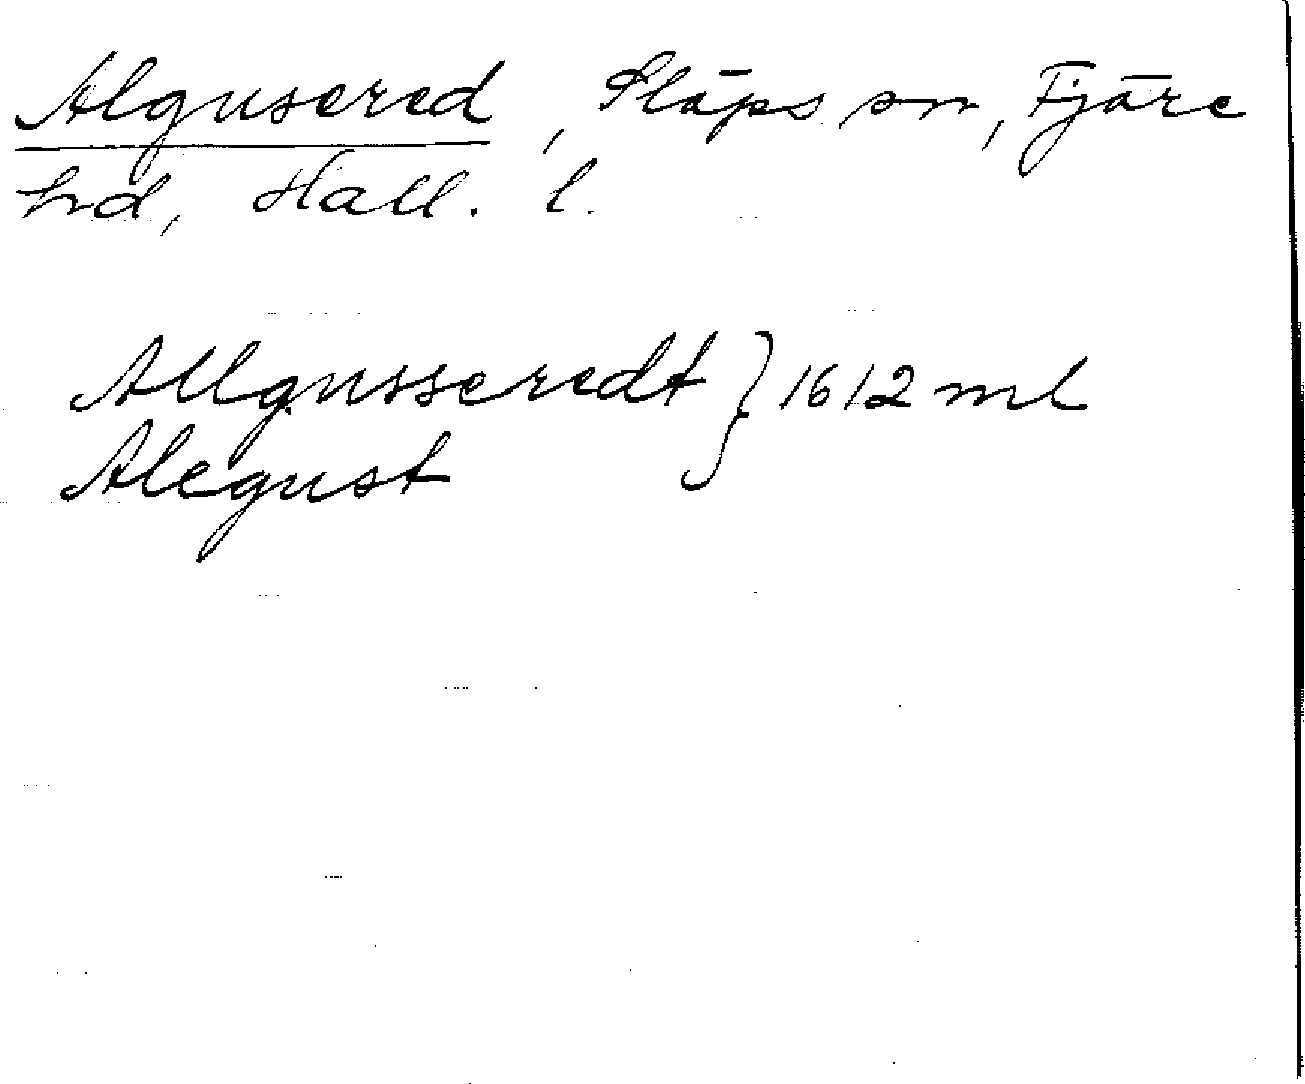 Algusered, Släps sn, Fjäre
hd, Hall. l.
Allgusseredt } 1612 ml
Alegust